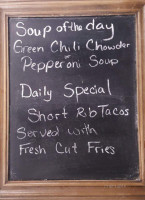 Soup of the day
Green Chili Chowder
or
Pepperoni Soup
Daily Special
Short Rib Tacos
Served with
Fresh Cut Fries